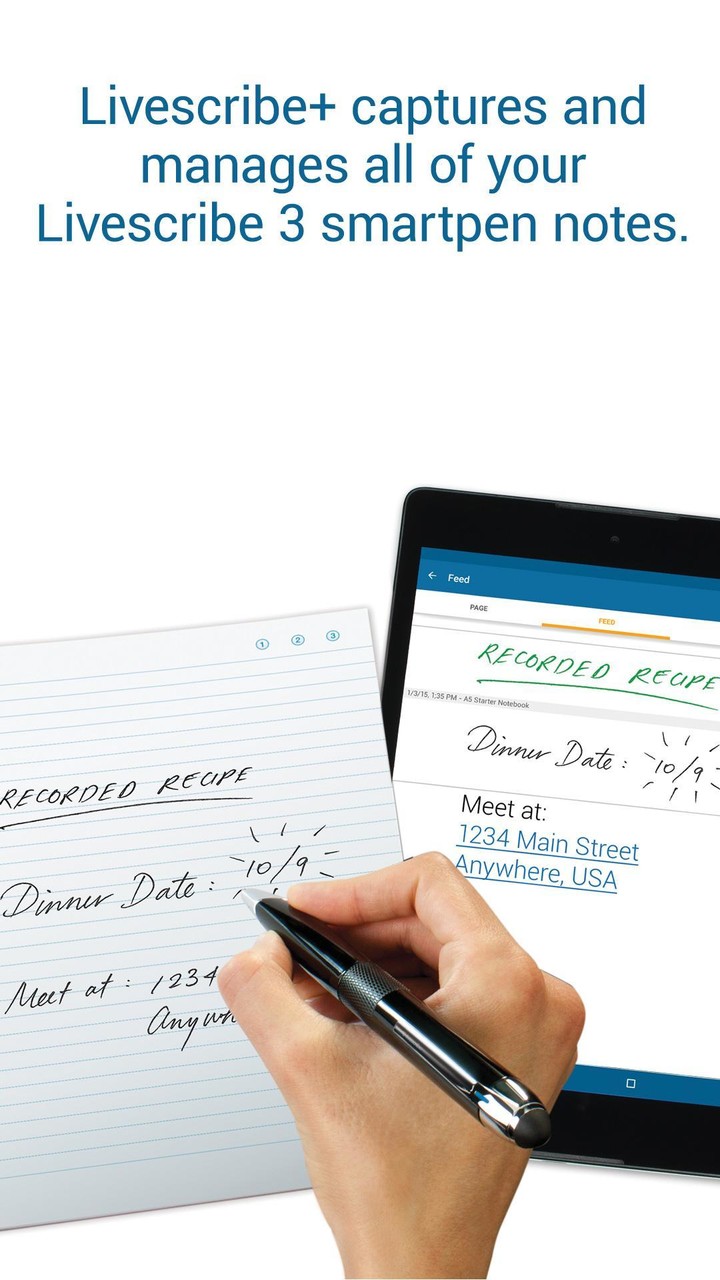 Livescribe+ captures and
manages all of your
Livescribe 3 smartpen notes.
Feed
PAGE
FEED
RECORDED RECIPE
1/3/15, 1:35 PM – A5 Starter Notebook
Dinner Date : 10/9
Meet at:
1234 Main Street
Anywhere, USA
1 2 3
RECORDED RECIPE
Dinner Date : 10/9
Meet at : 1234